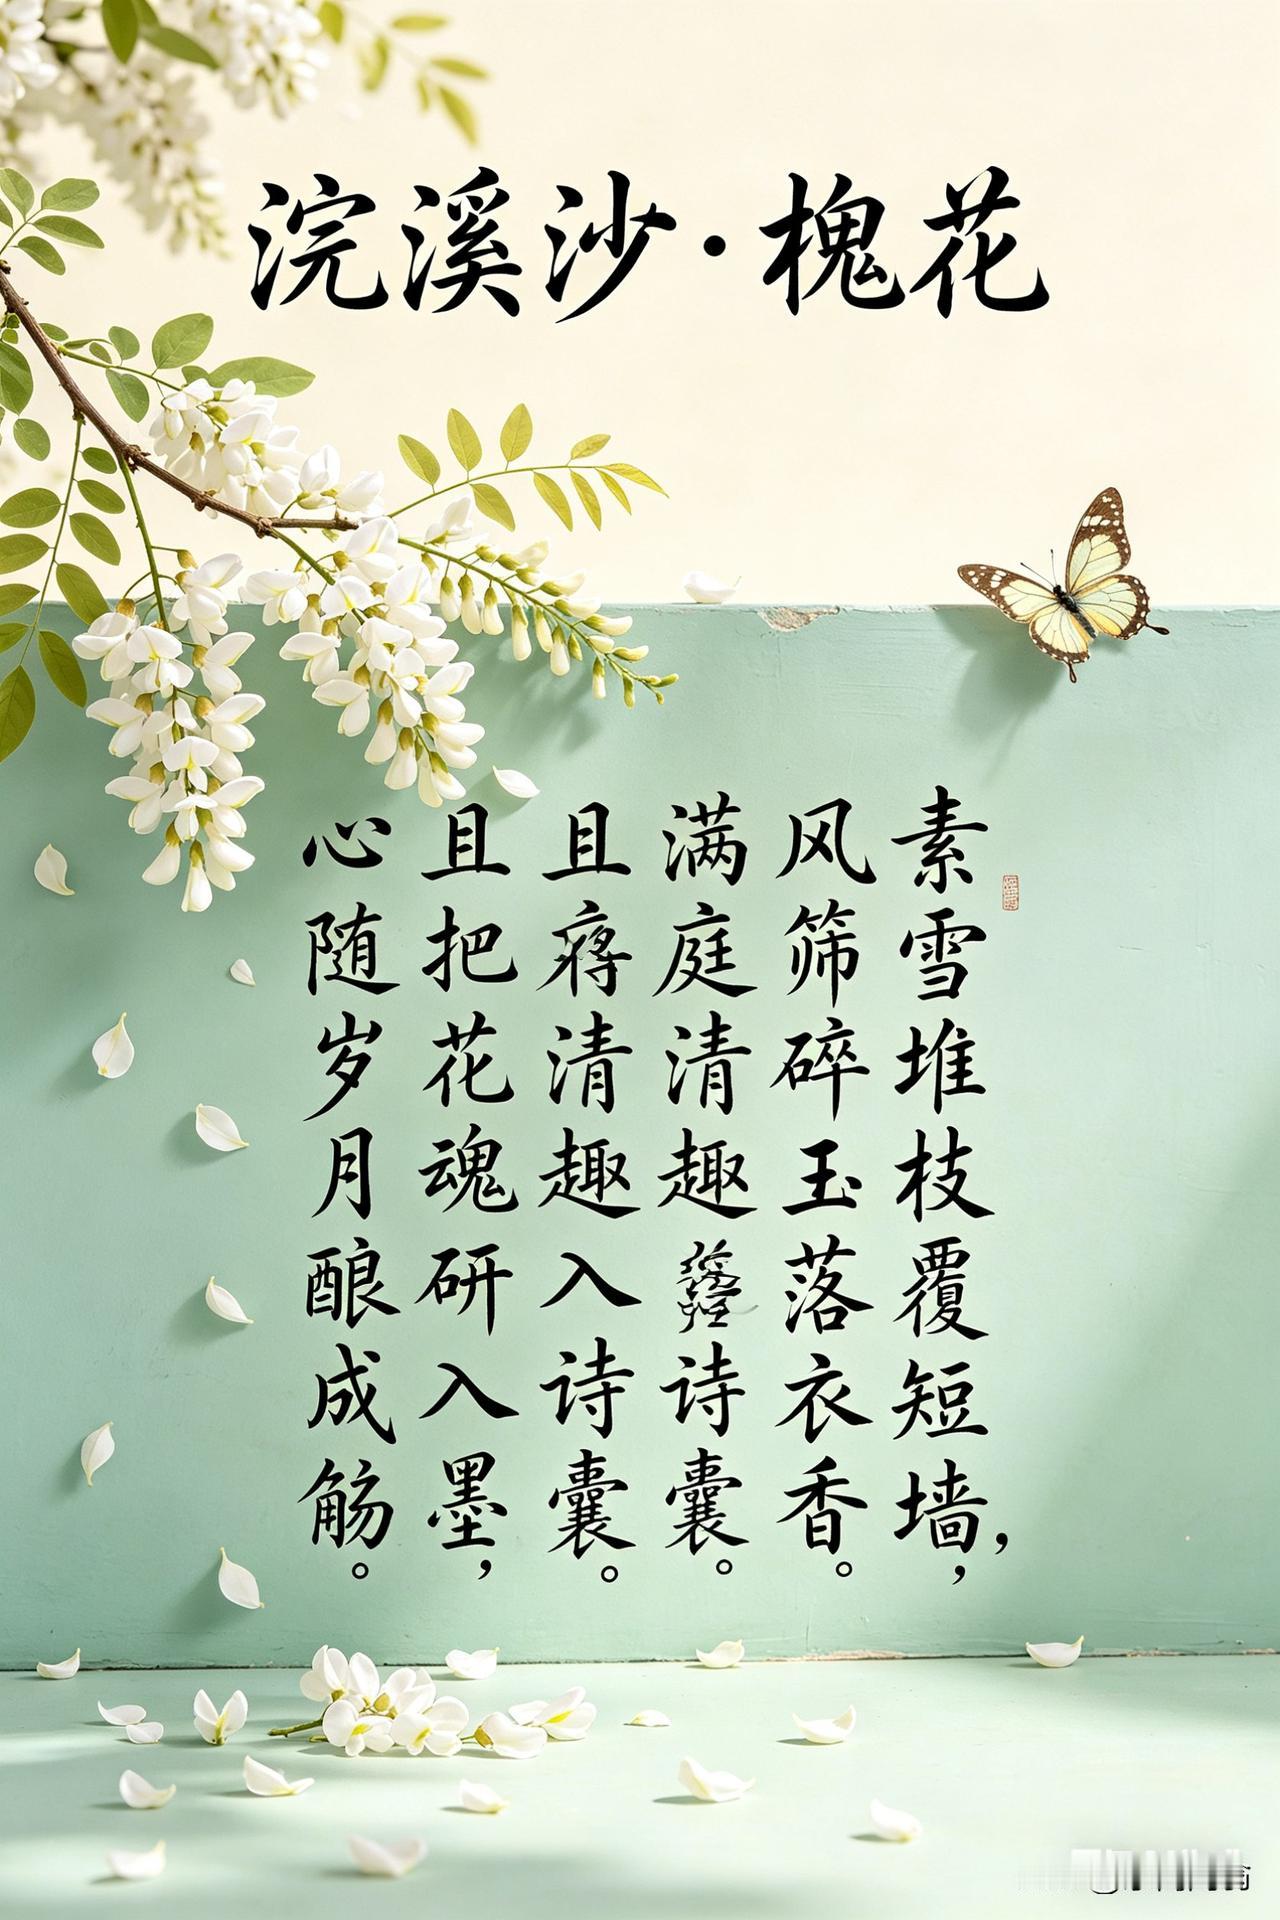 浣溪沙·槐花
素雪堆枝覆短墙，，
风筛碎玉落衣香。
满庭清趣诗囊。
且清趣入诗囊。
且把花魂研入墨，
心随岁月酿成觞。